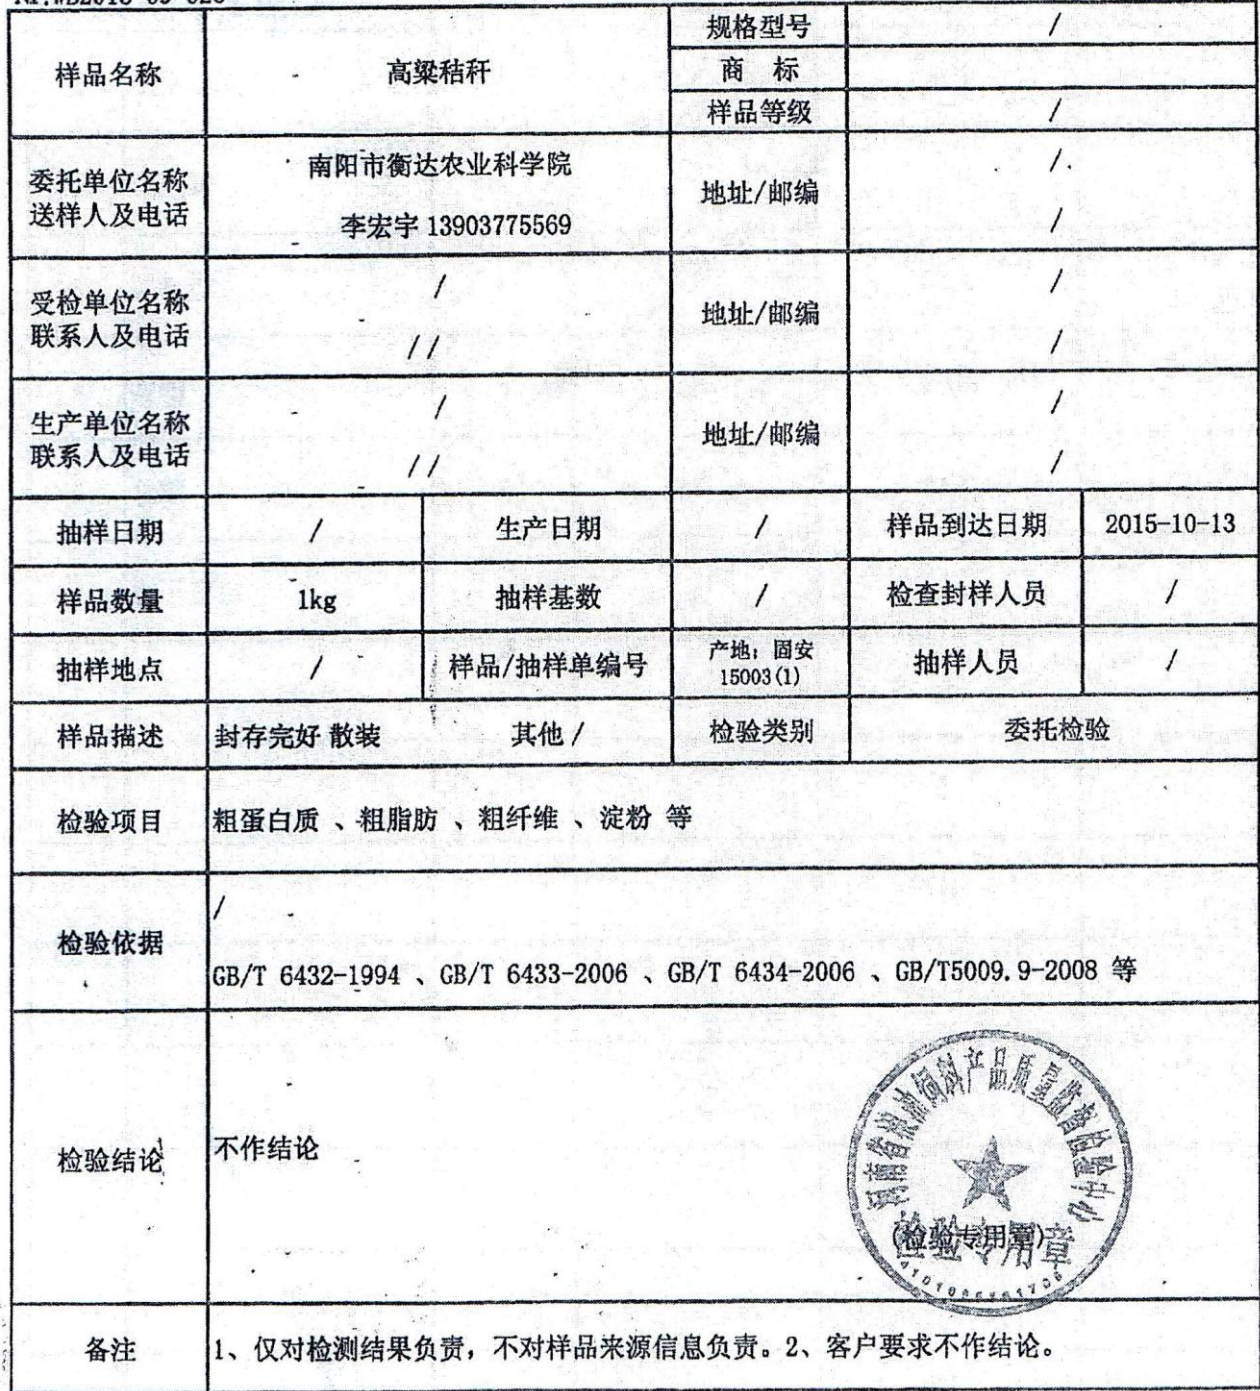 样品名称
高粱秸秆
规格型号
/
商 标
样品等级
/
委托单位名称
送样人及电话
南阳市衡达农业科学院
李宏宇 13903775569
地址/邮编
/
/
受检单位名称
联系人及电话
/
//
地址/邮编
/
/
生产单位名称
联系人及电话
/
//
地址/邮编
/
/
抽样日期
/
生产日期
/
样品到达日期
2015-10-13
样品数量
1kg
抽样基数
/
检查封样人员
/
抽样地点
/
样品/抽样单编号
产地：固安
15003(1)
抽样人员
/
样品描述
封存完好 散装
其他 /
检验类别
委托检验
检验项目
粗蛋白质 、粗脂肪 、粗纤维 、淀粉 等
检验依据
/
GB/T 6432-1994 、GB/T 6433-2006 、GB/T 6434-2006 、GB/T5009.9-2008 等
检验结论
不作结论
河南省粮油饲料产品质量监督检验中心
(检验专用章)
检验专用章
备注
1、仅对检测结果负责，不对样品来源信息负责。2、客户要求不作结论。